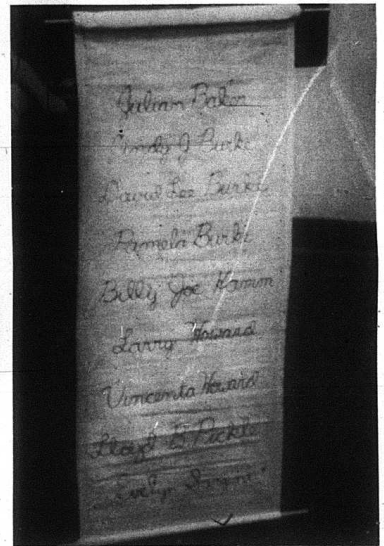 Julian Baker
Cindy J Burke
David Lee Burke
Pamela Burke
Billy Joe Hamm
Larry Howard
Vincenta Howard
Lloyd G Pickle
Evelyn